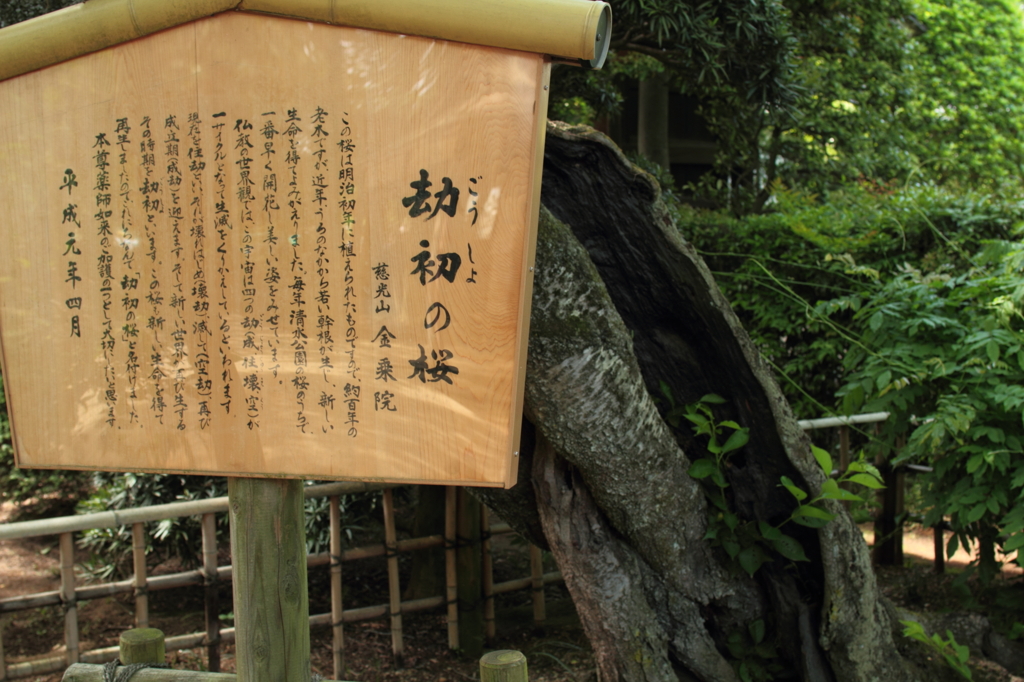 劫初の桜
ごうしょ
慈光山 金乗院
この桜は明治初年に植えられたものですので、約百年の
老木ですが、近年うろのなかから若い幹根が生じ、新しい
生命を得てよみがえりました。毎年清水公園の桜のうちで、
一番早く開花し美しい姿をみせています。
仏教の世界観では、この宇宙は四つの劫(成、住、壊、空)が
一サイクルとなって生滅をくりかえしているといわれます
現在を住劫といい、それが壊れはじめ(壊劫)滅して(空劫)再び
成立期(成劫)を迎えます。そして新しい世界が再び生ずる
その時期を劫初といいます。この桜も新しい生命を得て
再生しましたのでこれにちなんで「劫初の桜」と名付けました。
本尊薬師如来のご加護の一つとして大切にしたいと思います。
平成元年四月